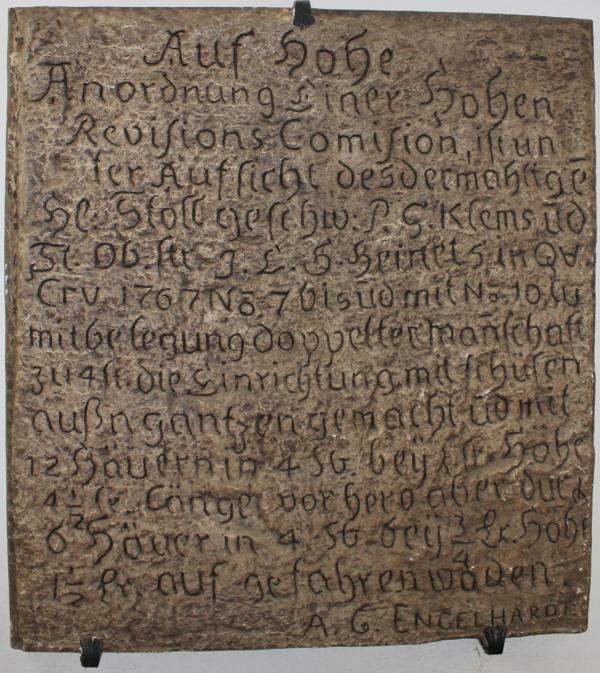 Auf Hohe
Anordnung Einer Hohen
Reviſions Comiſion, iſt un
ter Aufſicht des dermahligē
H: Stoll Geſchw: P. G. Klems ūd
St. Ob. ſtr. J. E. H. Heinels in Qv.
Crv. 1767 No. 7 bis ūd mit No. 10,
mit belegung doppelter man̄ſchaft
zu 4 ſt. die Einrichtung mit ſchüſen
außn gantzen gemacht ūd mit
12 Häuern in 4 St. beÿ Lr. Höhe
4 1/2 Lr. Länge, vor hero aber durch
6 Häuer in 4 St. beÿ 3/4 Lr. Höhe
1 1/2 Lr. auf gefahren woden.
A. G. ENGELHARDT